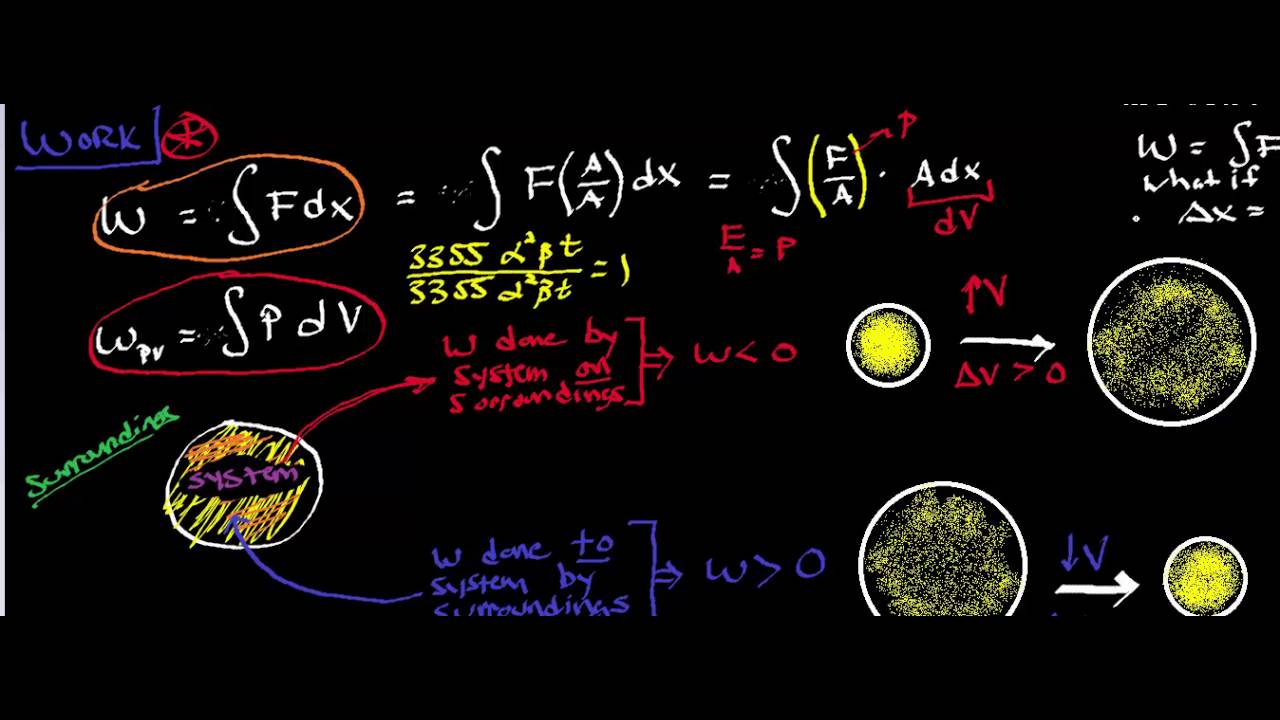 WORK *
W = ∫ F dx = ∫ F(A/A) dx = ∫ (F/A) · A dx
P
dV
3355 α²βt / 3355 α²βt = 1
F/A = P
W_PV = ∫ P dV
W done by
system on
Sorroundings
⇒ W < 0
↑V
ΔV > 0
surroundings
system
W done to
system by
surroundings
⇒ W > 0
↓V
W = ∫F
what if
· Δx =